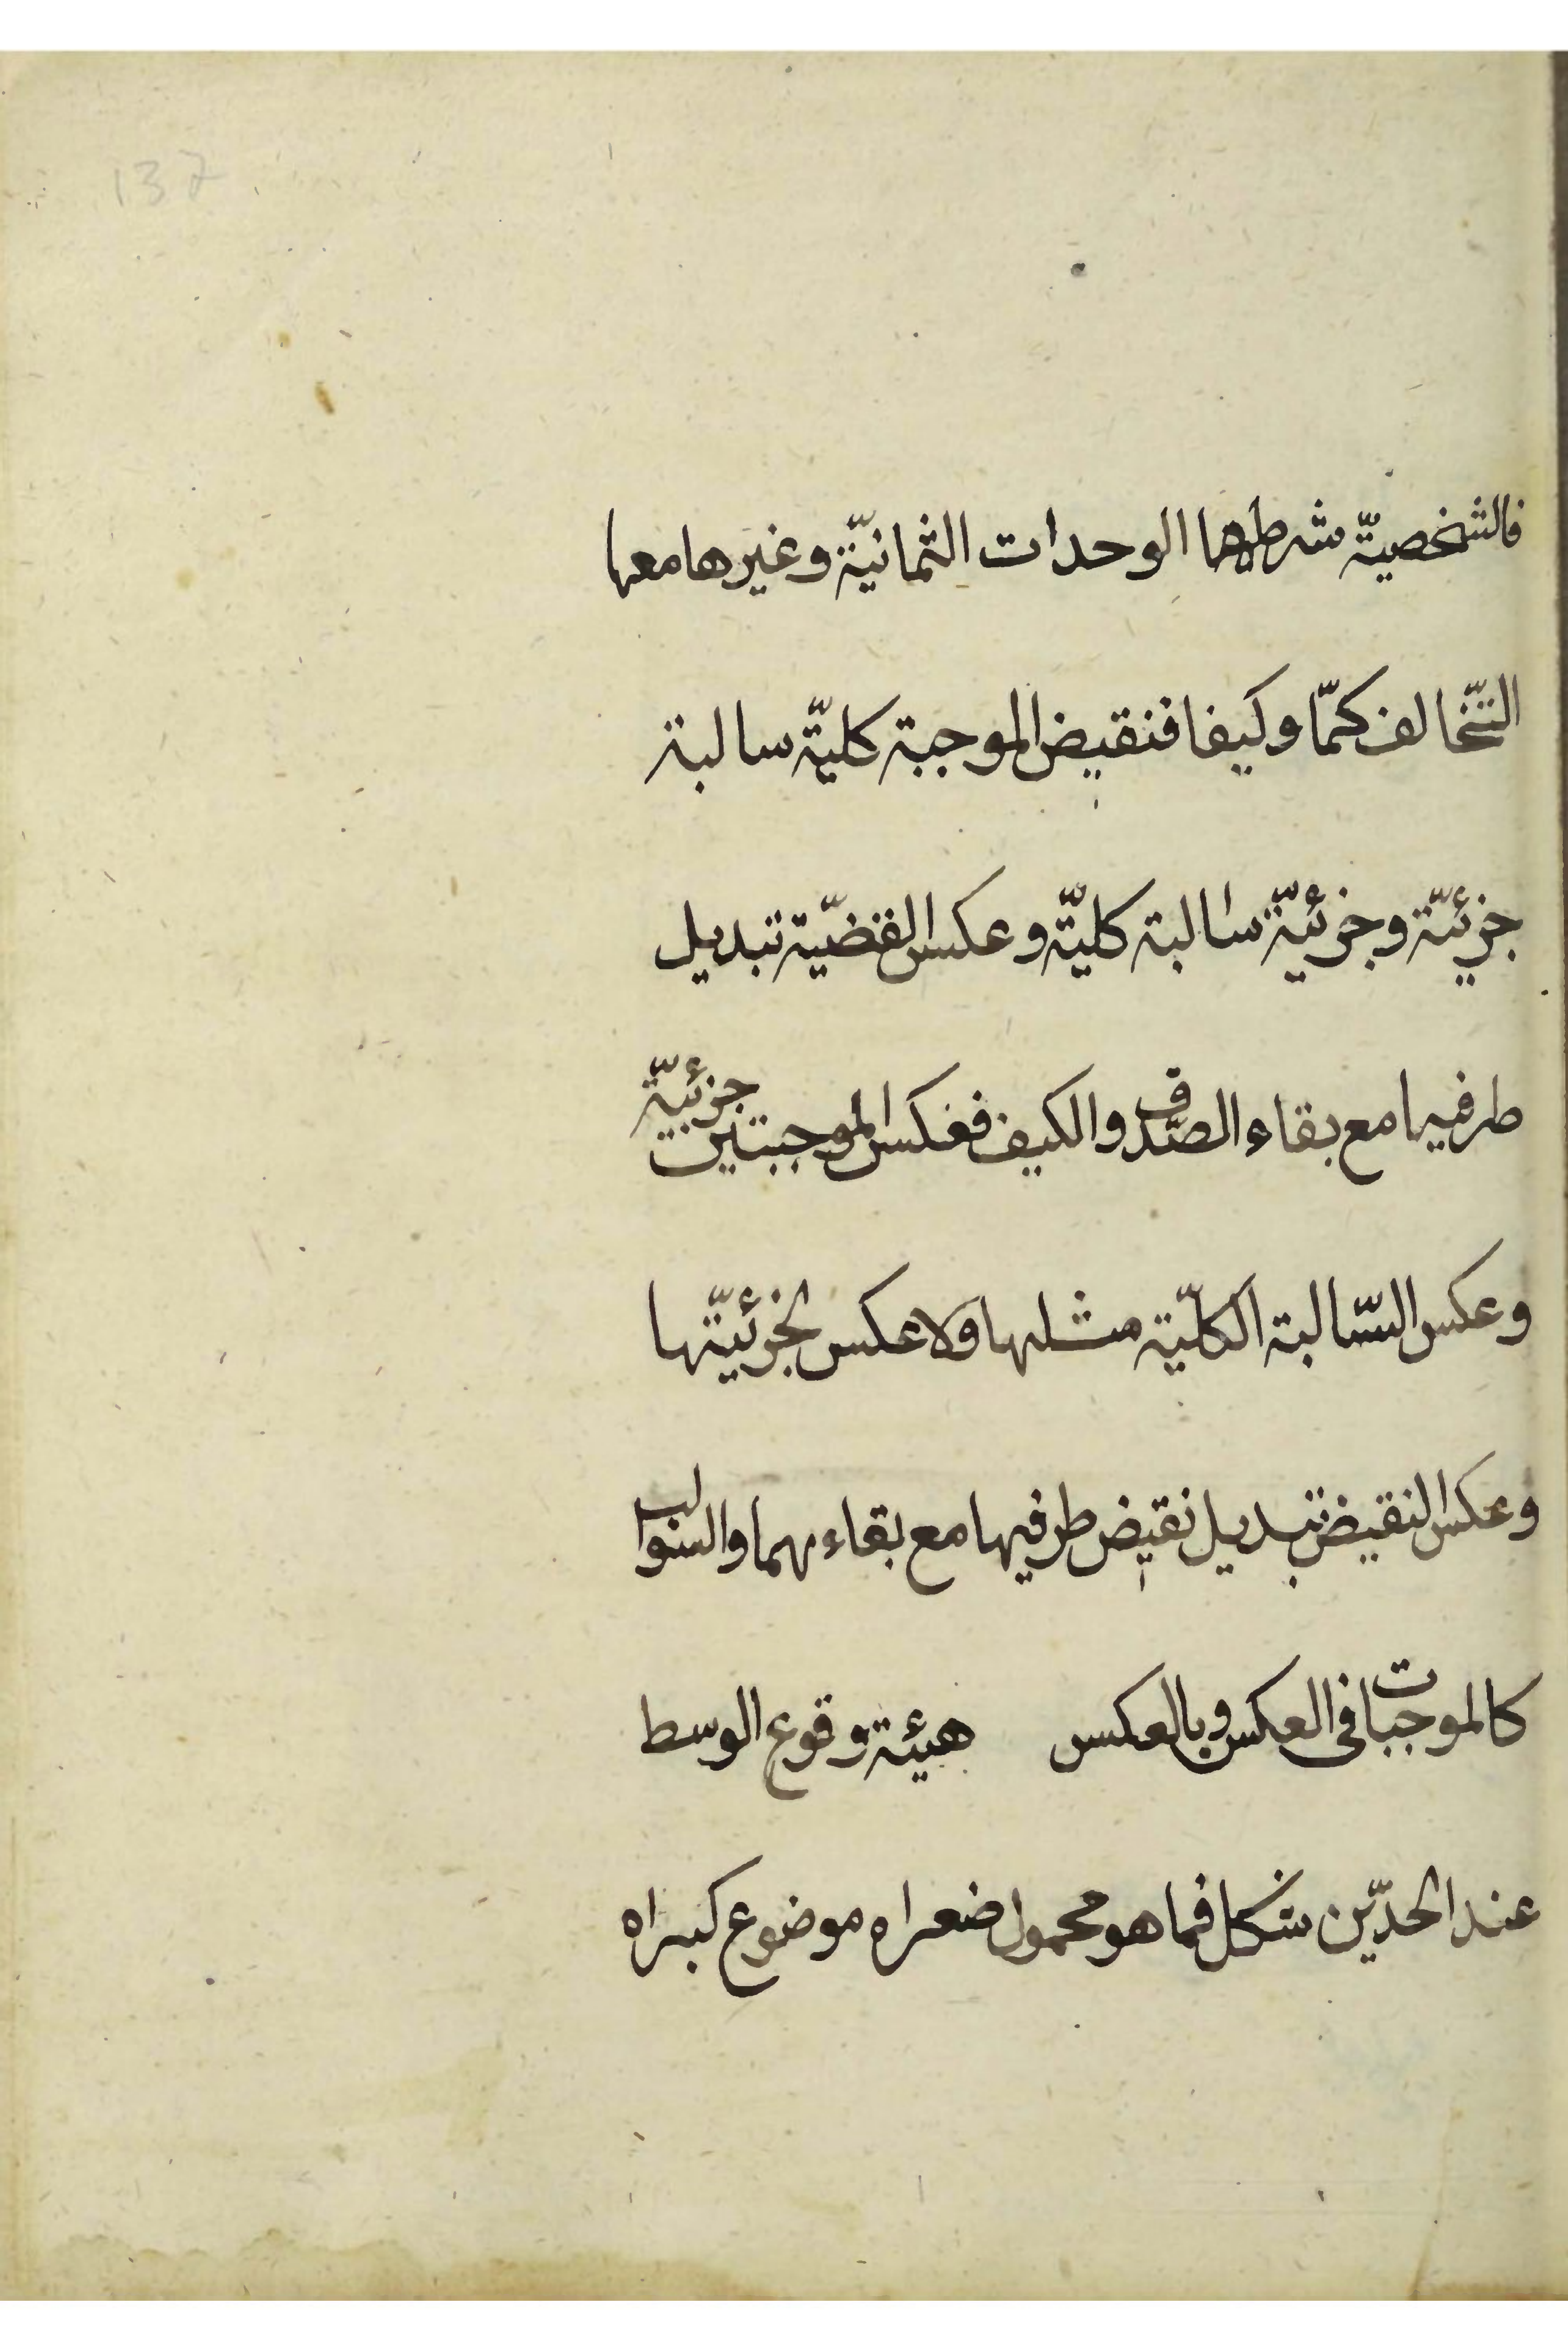 137
فالشخصيّة شرطها الوحدات الثمانيّة وغيرها معها
التّخالف كمّا وكيفا فنقيض الموجبة كليّة سالبة
جزئيّة وجزئيّة سالبة كليّة وعكس القضيّة تبديل
طرفيها مع بقاء الصّدق والكيف فعكس الموجبتين جزئيّة
وعكس السّالبة الكلّيّة مثلها ولا عكس لجزئيّتها
وعكس النقيض تبديل نقيض طرفيها مع بقاءهما والسوالب
كالموجبات في العكس وبالعكس هيئة وقوع الوسط
عند الحدّين شكل فما هو محمول ضعراه موضوع كبراه